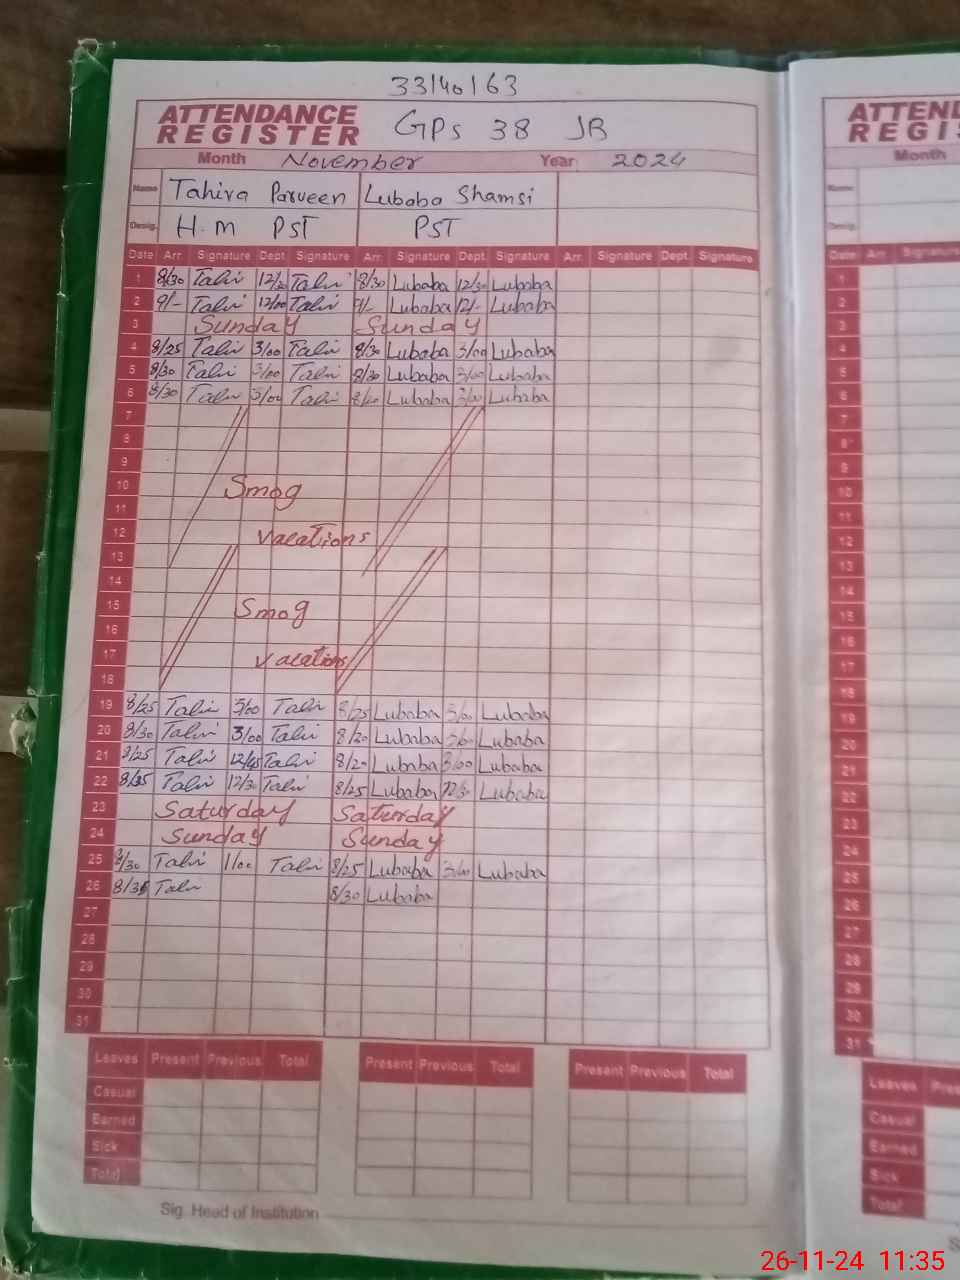 33140163
ATTENDANCE REGISTER GPS 38 JB
Month November Year 2024
Name Tahira Parveen Lubaba Shamsi
Desig. H.M PST PST
Date Arr. Signature Dept. Signature Arr. Signature Dept. Signature Arr. Signature Dept. Signature
1 8/30 Tahir 12/30 Tahir 8/30 Lubaba 12/30 Lubaba
2 9/- Tahir 12/00 Tahir 9/- Lubaba 12/- Lubaba
3 Sunday Sunday
4 8/25 Tahir 3/00 Tahir 8/30 Lubaba 3/00 Lubaba
5 8/30 Tahir 3/00 Tahir 8/30 Lubaba 3/00 Lubaba
6 8/30 Tahir 3/00 Tahir Lubaba 3/00 Lubaba
7
8
9
10 Smog
11
12 vacations
13
14
15 Smog
16
17 vacations
18
19 8/25 Tahir 3/00 Tahir 8/25 Lubaba 3/00 Lubaba
20 8/30 Tahir 3/00 Tahir 8/20 Lubaba 3/00 Lubaba
21 8/25 Tahir 12/45 Tahir 8/20 Lubaba 3/00 Lubaba
22 8/25 Tahir 12/30 Tahir 8/25 Lubaba 12/30 Lubaba
23 Saturday Saturday
24 Sunday Sunday
25 8/30 Tahir 1/00 Tahir 8/25 Lubaba 3/00 Lubaba
26 8/35 Tahir 8/30 Lubaba
27
28
29
30
31
Leaves Present Previous Total Present Previous Total Present Previous Total
Casual
Earned
Sick
Total
Sig. Head of Institution
ATTEND
REGIS
Month
Name
Desig.
Date Arr. Signature
1
2
3
4
5
6
7
8
9
10
11
12
13
14
15
16
17
18
19
20
21
22
23
24
25
26
27
28
29
30
31
Leaves Pres
Casual
Earned
Sick
Total
26-11-24 11:35